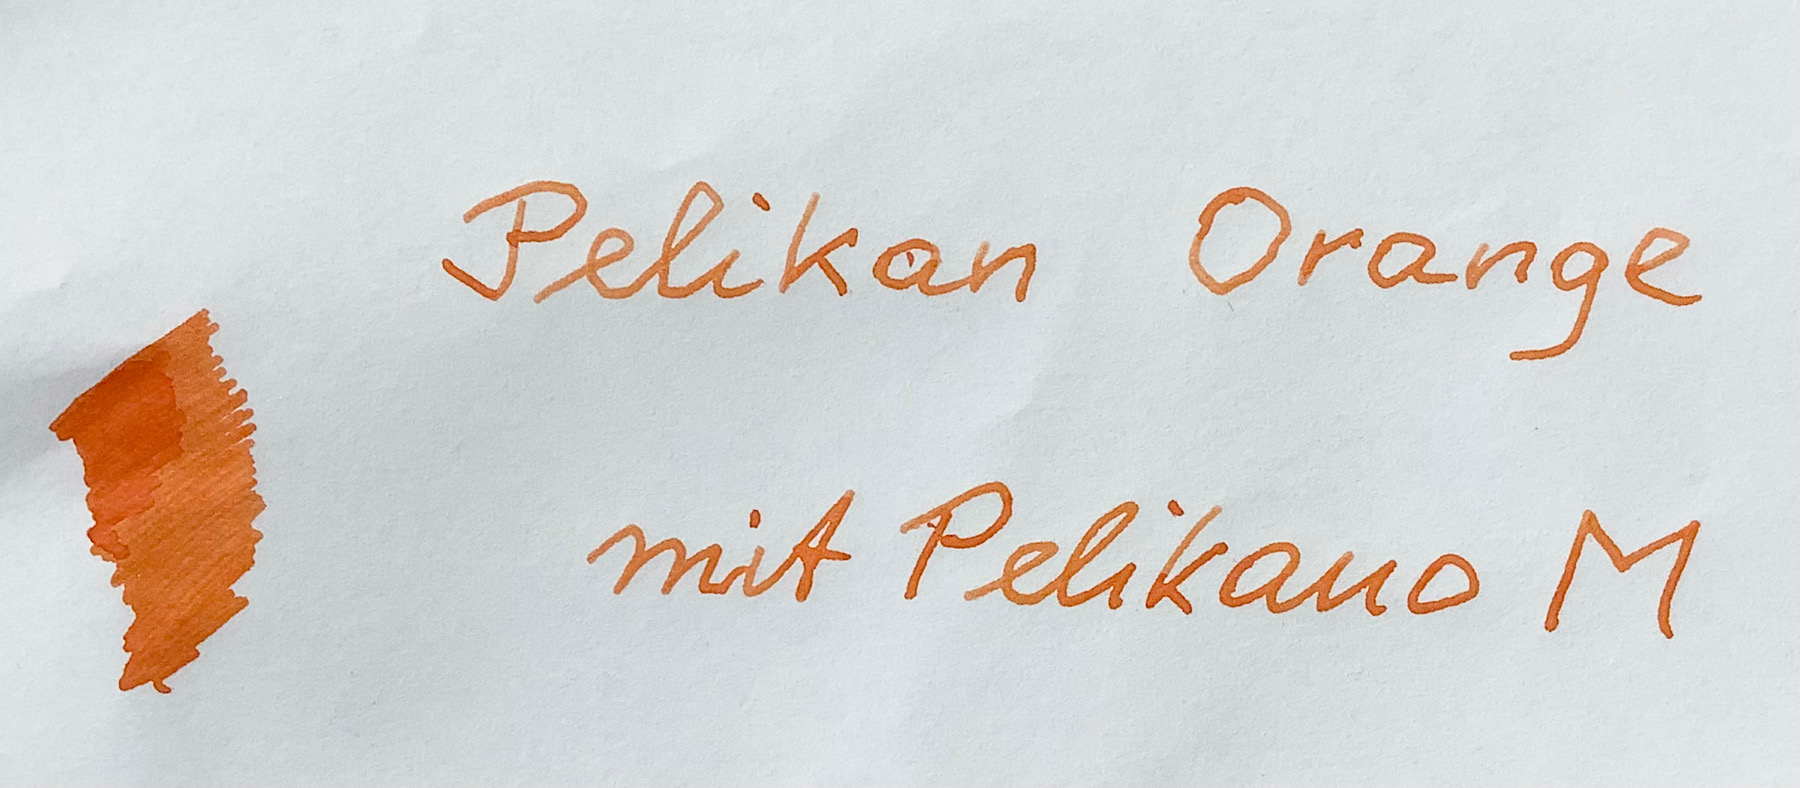 Pelikan Orange
mit Pelikano M